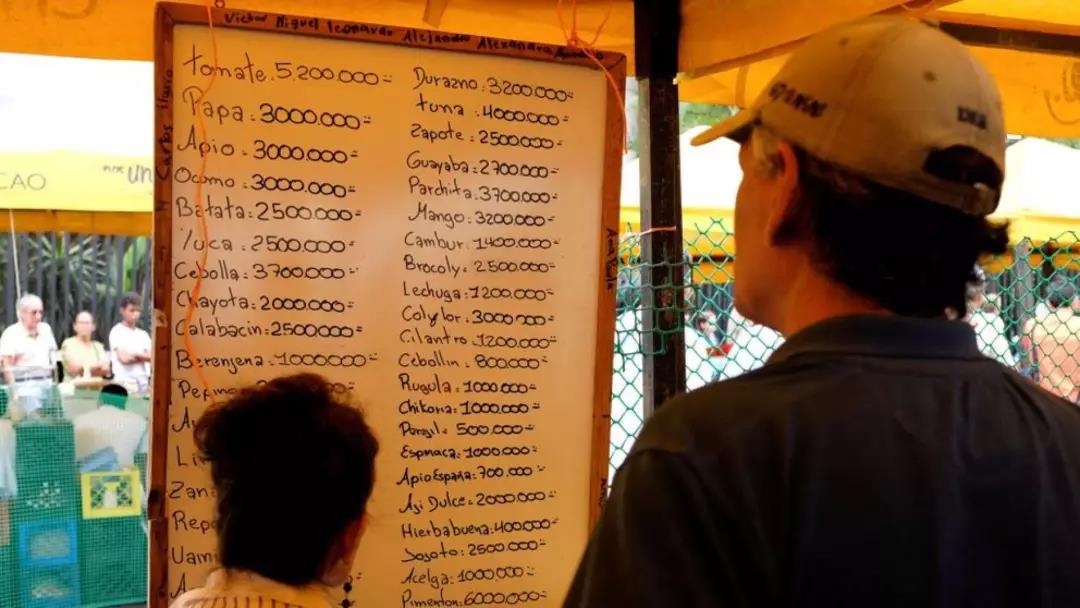 Victor Miguel Leonardo Alejandro Alexandra
Carlos Mario
tomate. 5.200.000=
Papa: 3000.000=
Apio: 3000.000=
Ocomo: 3000.000=
Batata: 2500.000=
Yuca: 2500.000=
Cebolla: 3700.000=
Chayota: 2000.000=
Calabacin: 2500000=
Berenjena: 1000000=
Pepino
Li
Zana
Repo
Vaini
Durazno: 3200.000=
tuna: 4000.000=
Zapote: 2500.000=
Guayaba: 2700.000=
Parchita: 3700.000=
Mango: 3200.000=
Cambur: 1400.000=
Brocoly: 2500.000=
Lechuga: 1200.000=
Colyflor: 3000.000=
Cilantro: 1200.000=
Cebollin: 800.000=
Rugula: 1000.000=
Chikoria: 1000.000=
Peregil: 500.000=
Espinaca: 1000.000=
Apio España: 700.000=
Aji Dulce: 2000.000=
Hierbabuena: 400.000=
Josoto: 2500.000=
Acelga: 1000.000=
Pimenton: 6000.000=
CAO